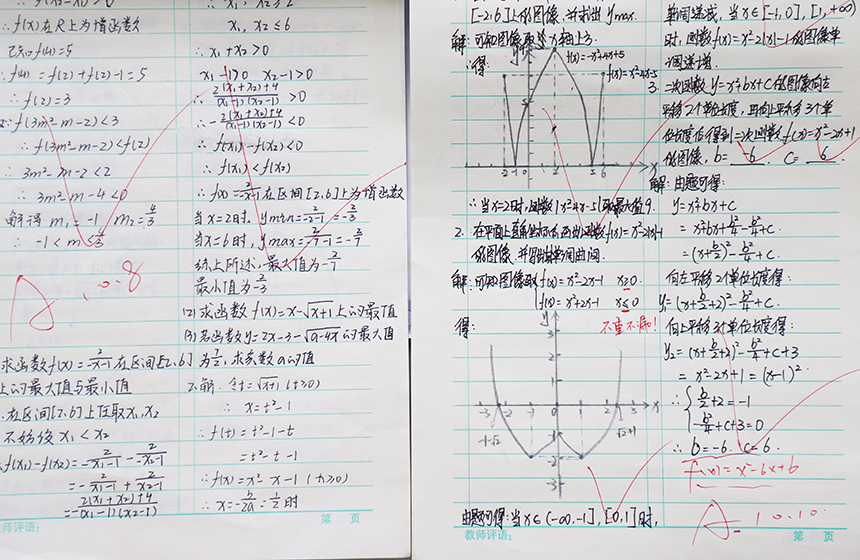 ∴f(x)在R上为增函数
已知f(4)=5
∴f(4)=f(2)+f(2)-1=5
∴f(2)=3
f(3m²-m-2)<3
∴f(3m²-m-2)<f(2)
∴3m²-m-2<2
∴3m²-m-4<0
解得 m₁=-1 m₂=4/3
∴-1<m<4/3
A 10.8
求函数f(x)=2/(-x-1)在区间[2,6]
上的最大值与最小值
在区间[2,6]上任取x₁,x₂
不妨设x₁<x₂
f(x₁)-f(x₂)=2/(-x₁-1)-2/(-x₂-1)
=-2/(x₁-1)+2/(x₂-1)
=-(2(x₁+x₂)+4)/((x₁-1)(x₂-1))
教师评语:
x₁,x₂≤6
∴x₁+x₂>0
x₁-1>0 x₂-1>0
∴(2(x₁+x₂)+4)/((x₁-1)(x₂-1))>0
∴-(2(x₁+x₂)+4)/((x₁-1)(x₂-1))<0
∴f(x₁)-f(x₂)<0
∴f(x₁)<f(x₂)
∴f(x)=2/(-x-1)在区间[2,6]上为增函数
当x=2时,ymin=2/(-2-1)=-2/3
当x=6时,ymax=2/(-7-1)=-2/7
综上所述,最大值为-2/7
最小值为-2/3
(2)求函数f(x)=x-√(x+1)上的最值
(3)若函数y=2x-3-√(a-4x)的最大值
为7/2,求实数a的值
2.解:令t=√(x+1)(t≥0)
∴x=t²-1
∴f(t)=t²-1-t
=t²-t-1
∴f(x)=x²-x-1(t≥0)
∴x=-b/2a=1/2时
第 页
[-2,6]上的图像.并求出ymax.
解:可知图像取x轴上方.
得:
f(x)=-x²+4x+5
f(x)=x²-4x-5
5
-2 -1 0 1 2 5 6 x
∴当x=2时,函数|x²-4x-5|取最大值9.
2.在平面上直角坐标系画出函数f(x)=x²-2|x|-1
的图像.并写出单调区间.
解:可知图像取{f(x)=x²-2x-1 x≥0.
f(x)=x²+2x-1 x≤0
不重不漏!
得:
y
3
2
1
-3 -2 -1 0 1 2 3 x
-1-√2
√2+1
-1
-2
-3
由题可得:当x∈(-∞,-1],[0,1]时,
教师评语:
单调递减,当x∈[-1,0],[1,+∞)
时,函数f(x)=x²-2|x|-1的图像单
调递增.
3.二次函数y=x²+bx+c的图像向左
平移2个单位长度,再向上平移3个单
位长度后得到二次函数f(x)=x²-2x+1
的图像,b=-6 c=6.
解:由题可得:
y=x²+bx+c
=x²+bx+b²/4-b²/4+c.
=(x+b/2)²-b²/4+c.
向左平移2个单位长度得:
y₁=(x+b/2+2)²-b²/4+c.
向上平移3个单位长度得:
y₂=(x+b/2+2)²-b²/4+c+3
=x²-2x+1=(x-1)²
∴{b/2+2=-1
-b²/4+c+3=0
∴b=-6.c=6.
f(x)=x²-6x+6
A- 10.10.
第 页